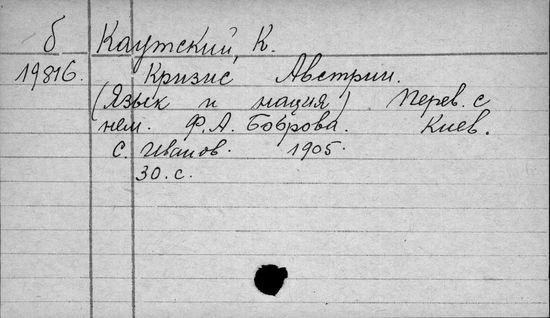 б Каутский, К.
19816. Кризис Австрии.
(Язык и нация) Перев. с
нем. Ф.А. Боброва. Киев.
С. Иванов. 1905.
30. с.